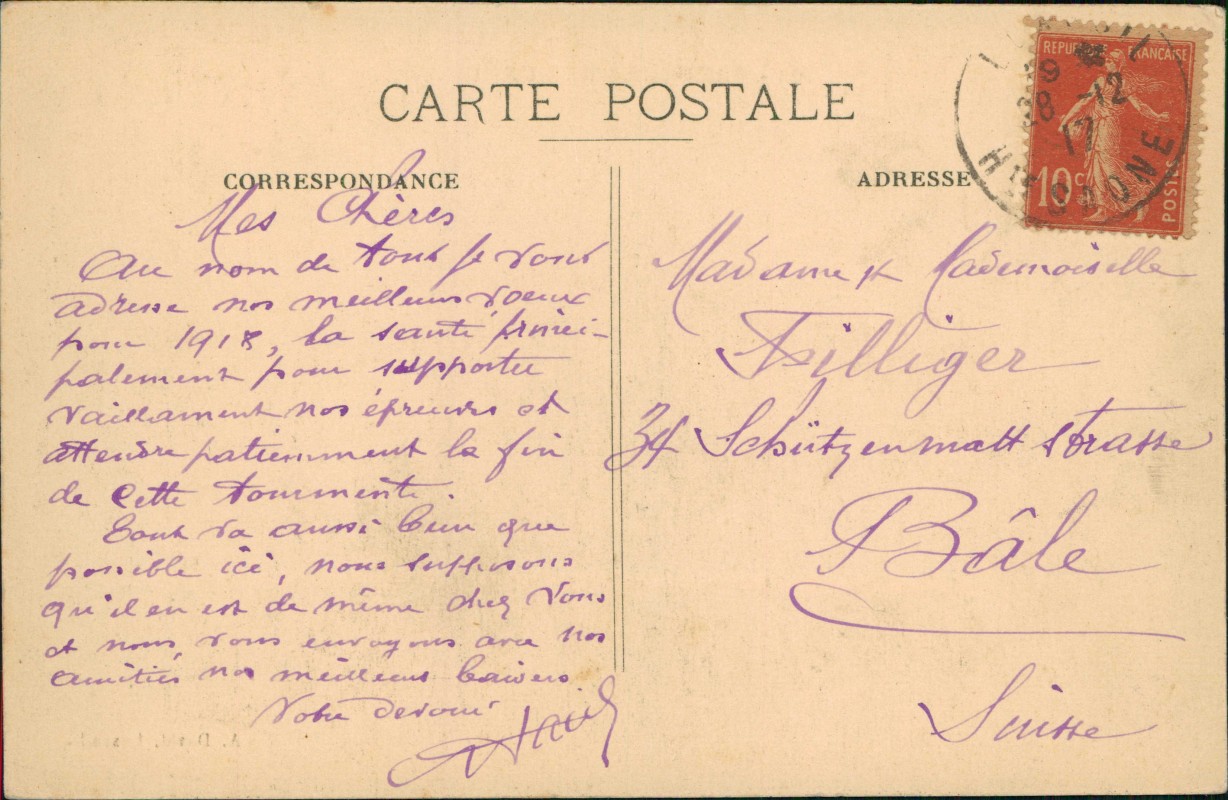 CARTE POSTALE
CORRESPONDANCE
Mes Chères
Au nom de tous je vous
adresse nos meilleurs voeux
pour 1918, la santé princi-
palement pour supporter
vaillament nos épreuves et
attendre patiemment la fin
de cette tourmente.
Tout va aussi bien que
possible ici, nous supposons
qu'il en est de même chez vous
et nous vous envoyons avec nos
amitiés nos meilleurs baisers
Votre dévoué
ADRESSE
REPUBLIQUE FRANÇAISE
10 c
POSTES
28 -12
17
Hte SAONE
Madame & Mademoiselle
Filliger
34 Schützenmatt strasse
Bâle
Suisse